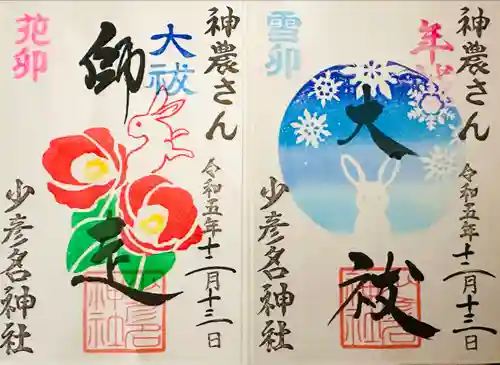 神農さん
年神
大祓
雪卯
令和五年十二月十三日
少彦名神社
神農さん
大祓
師走
花卯
令和五年十二月十三日
少彦名神社